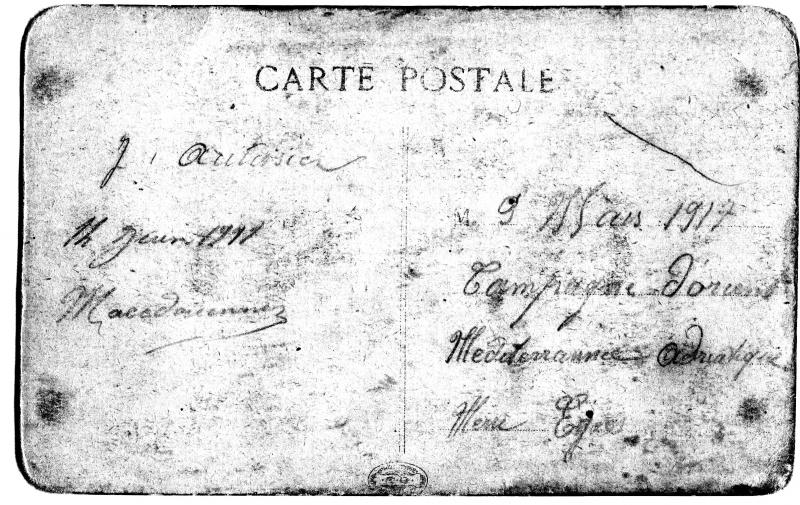 CARTE POSTALE
J.
14 Juin 1917
Macedoienne
M. 9 Mars 1917
Campagne d'orient
Mediterrannee adriatique
Mere Egee